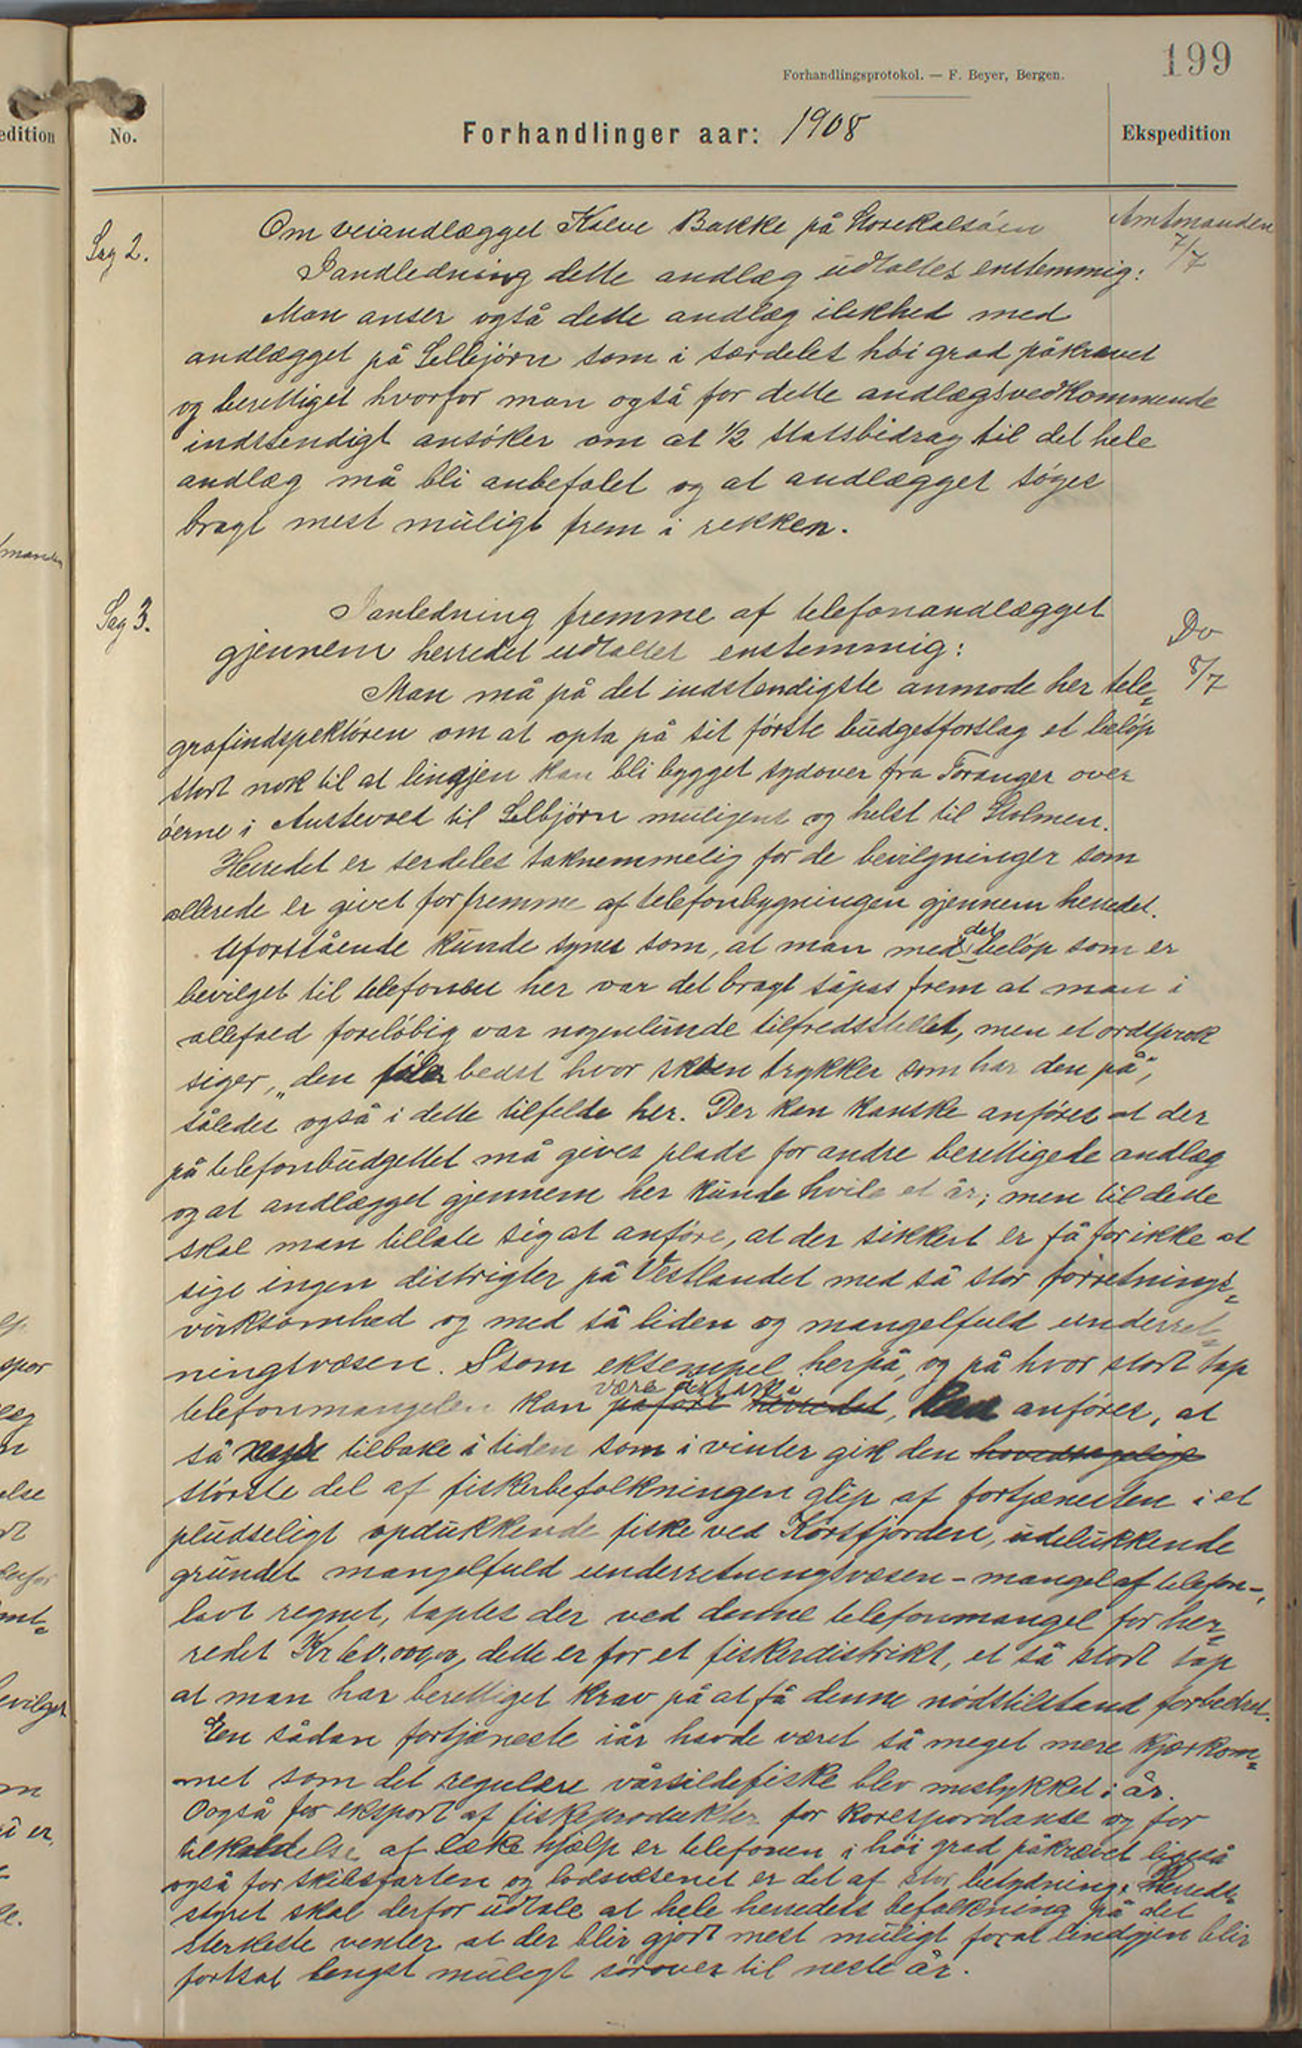 199
Forhandlingsprotokol. — F. Beyer, Bergen.
edition
No.
Forhandlinger aar: 1908
Ekspedition
Sag 2.
Om veiandlægget Kalve Bakke på Storekalsöen
Amtmanden
7/7
Iandledning dette andlæg udtaltes enstemmig:
Man anser også dette andlæg ilikhed med
andlægget på Selbjörn som i særdeles höi grad påkrævet
og berettiget hvorfor man også for dette andlægsvedkommende
indstendigt ansöker om at 1/2 statsbidrag til det hele
andlæg må bli anbefalet og at andlægget söges
bragt mest muligt frem i rekken.
Sag 3.
Ianledning fremme af telefonandlægget
gjennem herredet udtaltes enstemmig:
Do
8/7
Man må på det indstendigste anmode her tele=
grafindspektören om at opta på sit förste budgetforslag et belöp
stort nok til at lindjen kan bli bygget sydover fra Toranger over
öerne i Austevold til Selbjörn muligens og helst til Stolmen.
Herredet er serdeles taknemmelig for de bevilgninger som
allerede er givet for fremme af telefonbygningen gjennem herredet.
Uforstående kunde synes som, at man med det belöp som er
bevilget til telefonen her var det bragt såpas frem at man i
allefald forelöbig var nogenlunde tilfredsstillet, men et ordsprok
siger, "den föler bedst hvor skoen trykker som har den på",
således også i dette tilfelde her. Der kan kanske anföres at der
på telefonbudgettet må gives plads for andre berettigede andlæg
og at andlægget gjennem her kunde hvile et år; men til dette
skal man tillate sig at anföre, at der sikkert er få for ikke at
sige ingen distrigter på Vestlandet med så stor forretnings=
virksomhed og med så liden og mangelfuld underret=
ningsvæsen. Som eksempel herpå, og på hvor stort tap
telefonmangelen kan påföre herredet, kan anföres, at
så tilbake i tiden som i vinter gik den hovedsagelige
störste del af fiskerbefolkningen glip af fortjænesten i et
pludseligt opdukkende fiske ved Korsfjorden, udelukkende
grundet mangelfuld underretningsvæsen - mangel af telefon -,
lavt regnet, taptes der ved denne telefonmangel for her=
redet Kr 60.000,00, dette er for et fiskerdistrikt, et så stort tap
at man har berettiget krav på at få denne nödstilstand forbedret.
Een sådan fortjæneste iår havde været så meget mere kjærkom=
met som det regulære vårsildefiske blev mislykket i år.
Også for eksport af fiskeprodukter for korespordanse og for
tilkaldelse af læke hjælp er telefonen i höi grad påkrævet ligeså
også for skibsfarten og lodsvæsenet er det af stor betydning. Herreds=
styret skal derfor udtale at hele herredets befolkning på det
sterkeste venter at der blir gjort mest muligt for at lindjen blir
fortsat lengst muligt sörover til neste år.